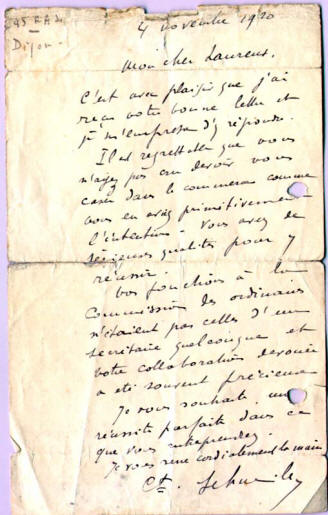 Dijon.
4 novembre 1920
Mon cher Laurens,
C'est avec plaisir que j'ai
reçu votre bonne lettre et
je m'empresse d'y répondre.
Il est regrettable que vous
n'ayez pas cru devoir vous
caser dans le commerce comme
vous en aviez primitivement
l'intention. Vous avez de
sérieuses qualités pour y
réussir.
Vos fonctions à la
Commission des ordinaires
n'étaient pas celles d'un
secrétaire quelconque et
votre collaboration dévouée
a été souvent précieuse
Je vous souhaite une
réussite parfaite dans ce
que vous entreprendrez.
Je vous serre cordialement la main
Ct.